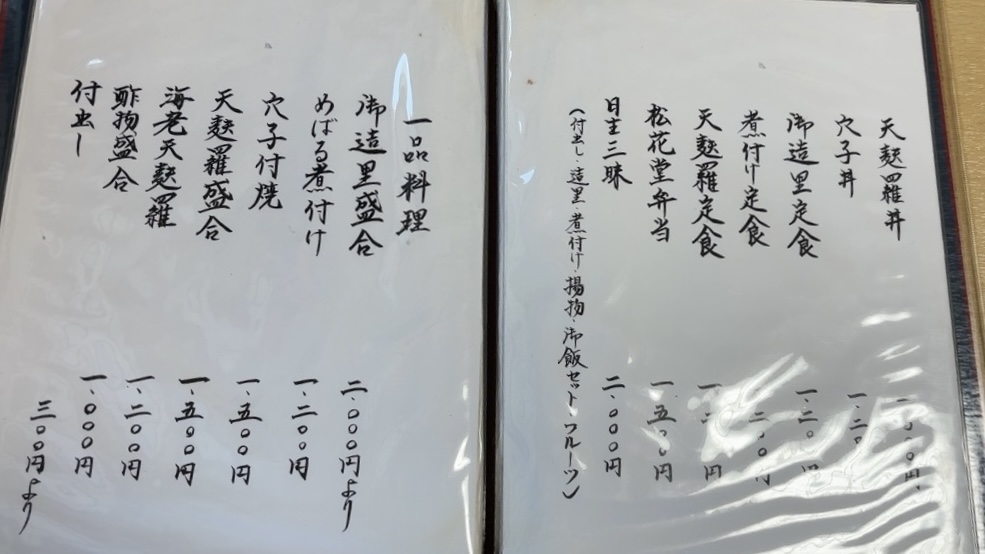 天麩羅丼
穴子丼
御造里定食 一.二〇〇円
煮付け定食
天麩羅定食
松花堂弁当 一.五〇〇円
日生三昧 二.〇〇〇円
(付出し・造里・煮付け・揚物・御飯セット・フルーツ)
一品料理
御造里盛合 二.〇〇〇円より
めばる煮付け 一.二〇〇円
穴子付焼 一.五〇〇円
天麩羅盛合 一.五〇〇円
海老天麩羅 一.二〇〇円
酢物盛合 一.〇〇〇円
付出し 三〇〇円より